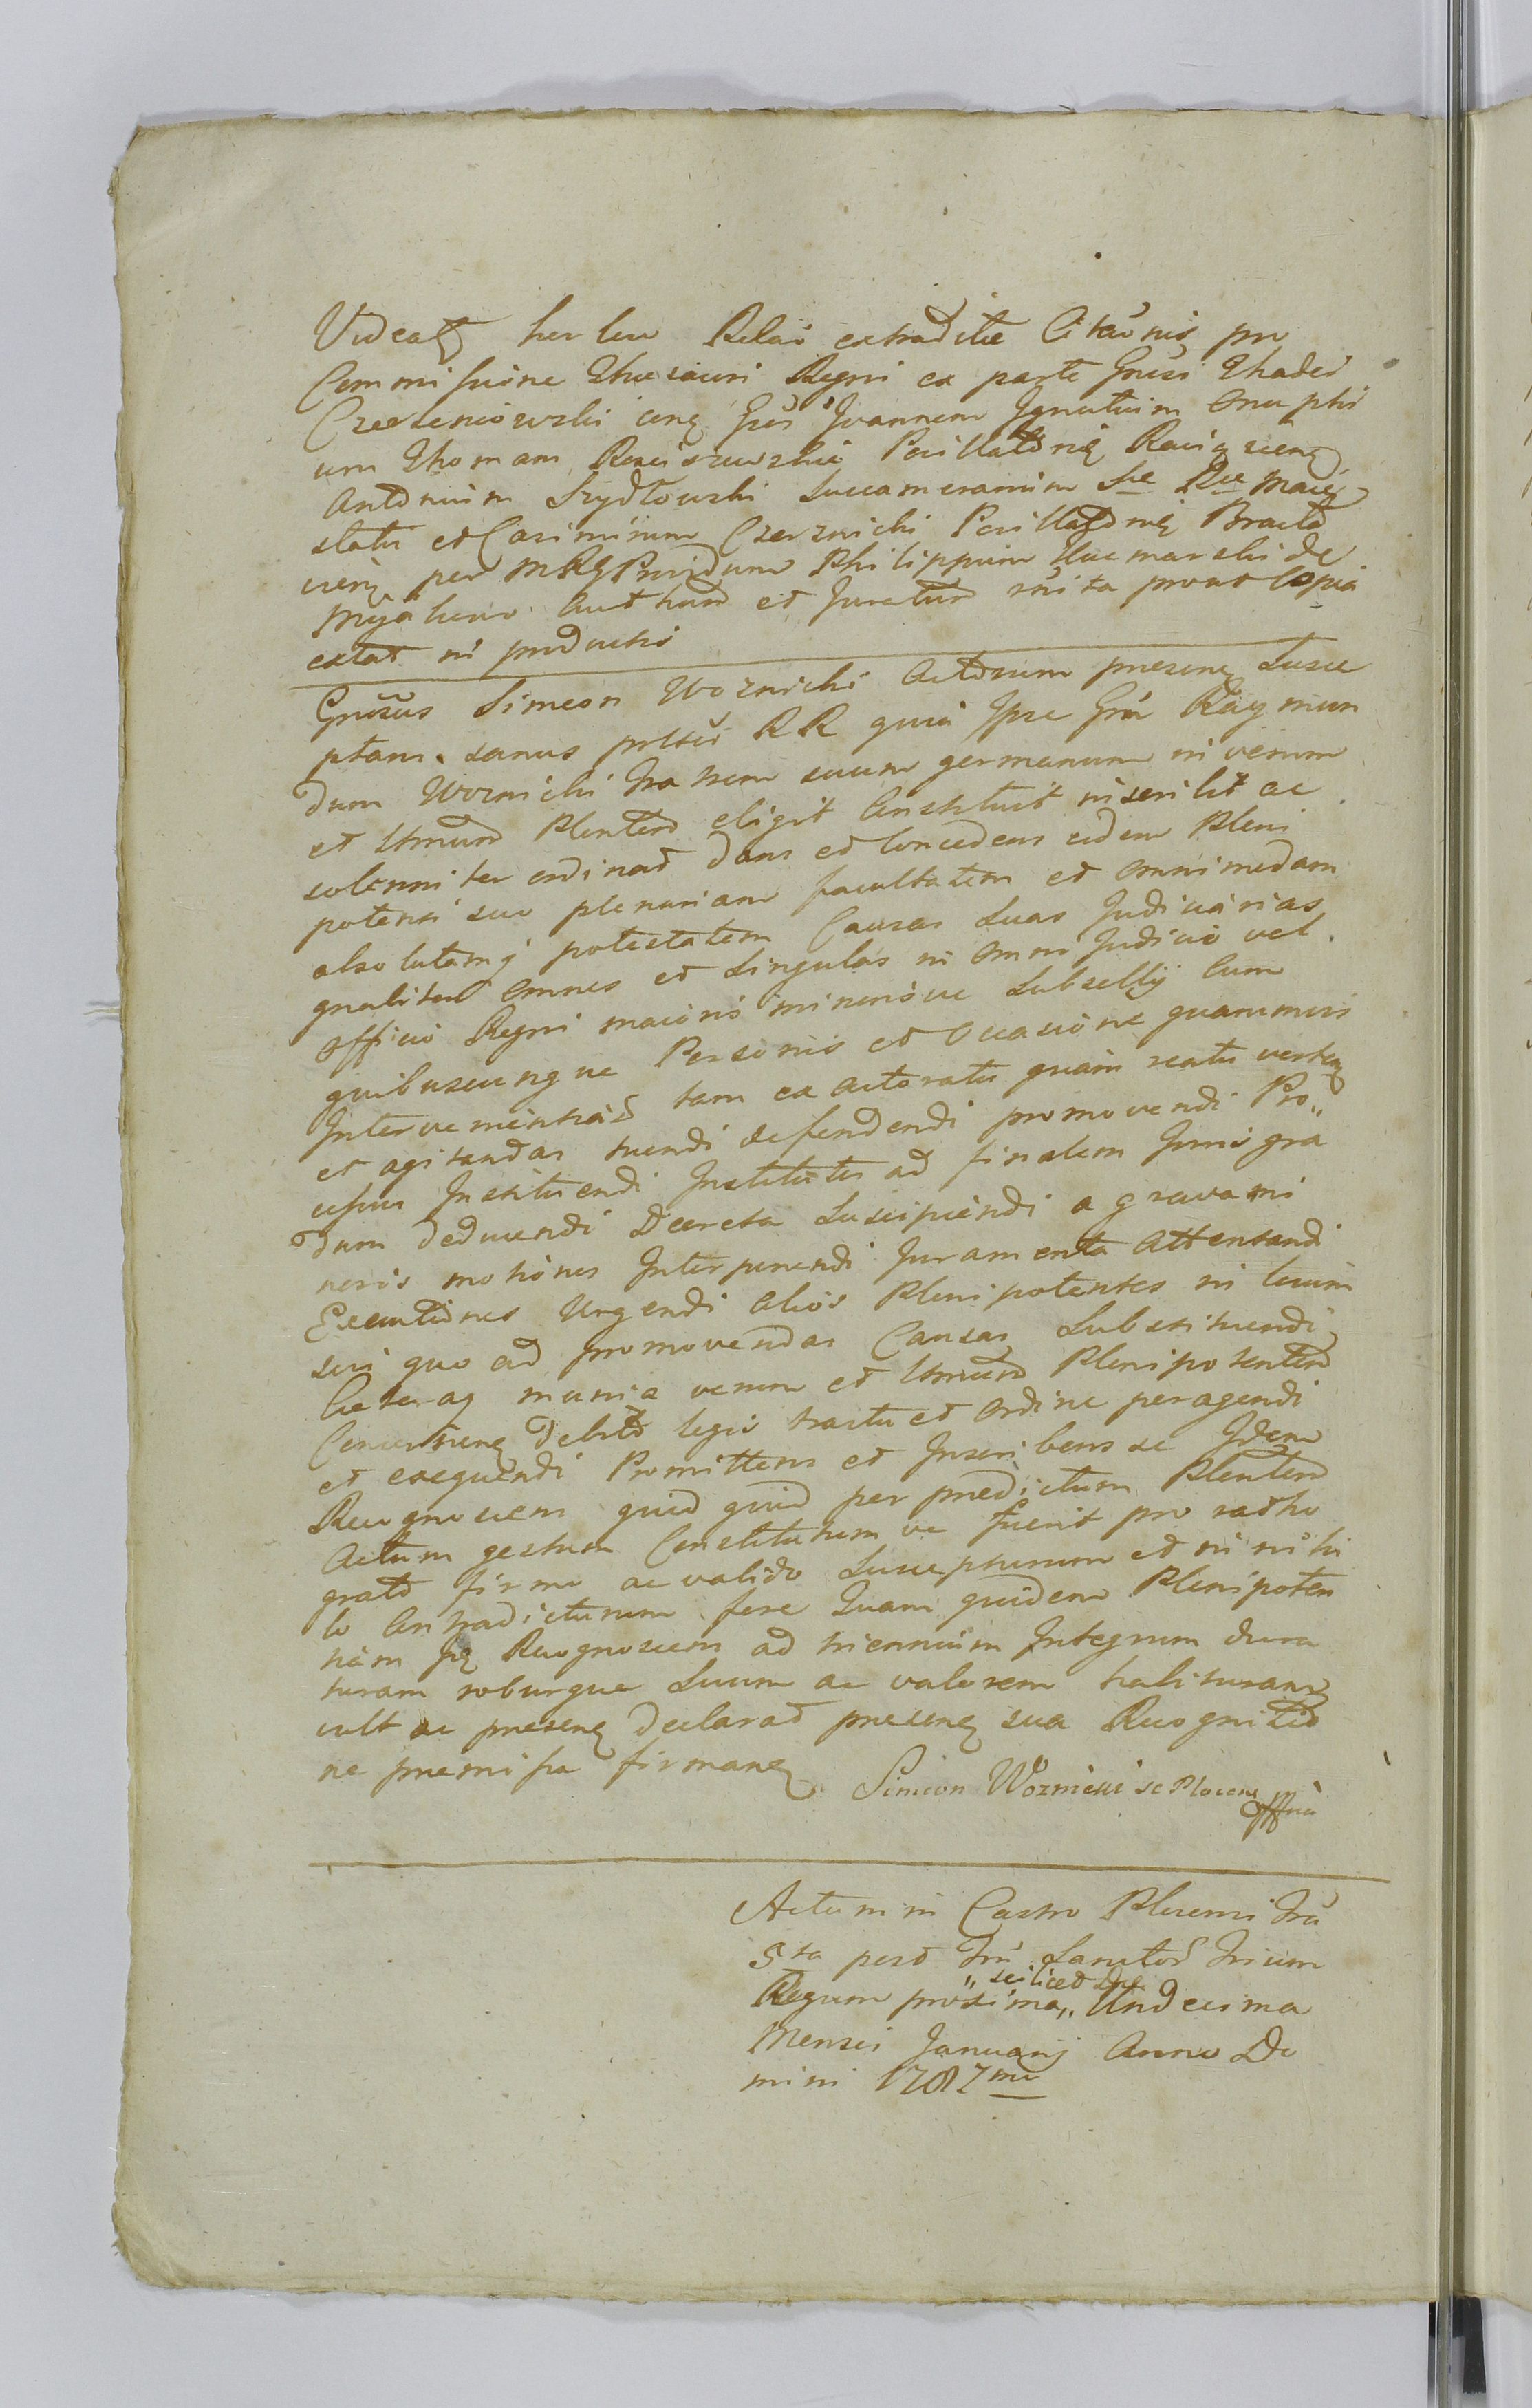 Videatq hoc loco Relaō extraditæ Citaōnis pro
Commissione Thesauri Regni ex parte Gnūsi Thadei
Czeczeniowski conq Gūs Joannem Ignatium Onuphi
um Thomam Rosciszewskie Pocillatorię Raciązienq
Antonium Szydłowski Succamerarium Sae Rae Maie
statis et Casimirum Czerznicki Pocillatorię Bracla
vienq per MRS Providum Philippum de
Authend et Juratum rūita prout Copia
extat in producto
Gnūsus Simeon Woznicki Actorum presenq Susce
ptam. sanus prtter RR quia Ipse Gūm Raymun
dum Woznicki Fratrem suum germanum in verum
et Ltmum Plentem eligit Constituit inscribit ac
solenniter ordinat dans et Concedens eidem Pleni
potenti suo plenariam facultatem et omnimodam
absolutamq potestatem Causas Suas Judiciarias
gnaliter omnes et Singulas in omni Judicio vel
officio Regni maioris minorisve Subsellij Cum
quibuscunque Personis et Occasione quarumvis
Interveniend tam ex actoratu quam reatu verten
et agitandas tuendi defendendi promovendi Pro„
cessus Instituendi Institutos ad finalem Juris gra
dum deducendi Decreta Suscipiendi a gravami
neris motiones Interponendi Juramenta Attentandi
Executiones Urgendi alios Plenipotentes in locum
sui quo ad promovendas Causas Substituendi
Cæteraq munia verum et Ltmum Plenipotentem
Concernenq debito legis tractu et ordine peragendi
et exequendi Promittens et Inscribens se Idem
Recognoscens quid quid per predictum Plentem
Actum gestum Constitutum ve fuerit pro ratho
grato firmo ac valido Suscepturum et in nihi
lo Contradicturum fore Quam quidem Plenipoten
tiam Iq Recognoscens ad triennium Integrum dura
turam roburque Suum ac valorem habituram
vult ac presenq declarat presenq sua Recognitio
ne premissa firmanq Simeon Woznicki
Actum in Castro Plocensi fria
5ta post Fm Sanctor Trium
Regum proxima „scilicet Die„ Undecima
Mensis Januarij Anno Do
mini 1787mo